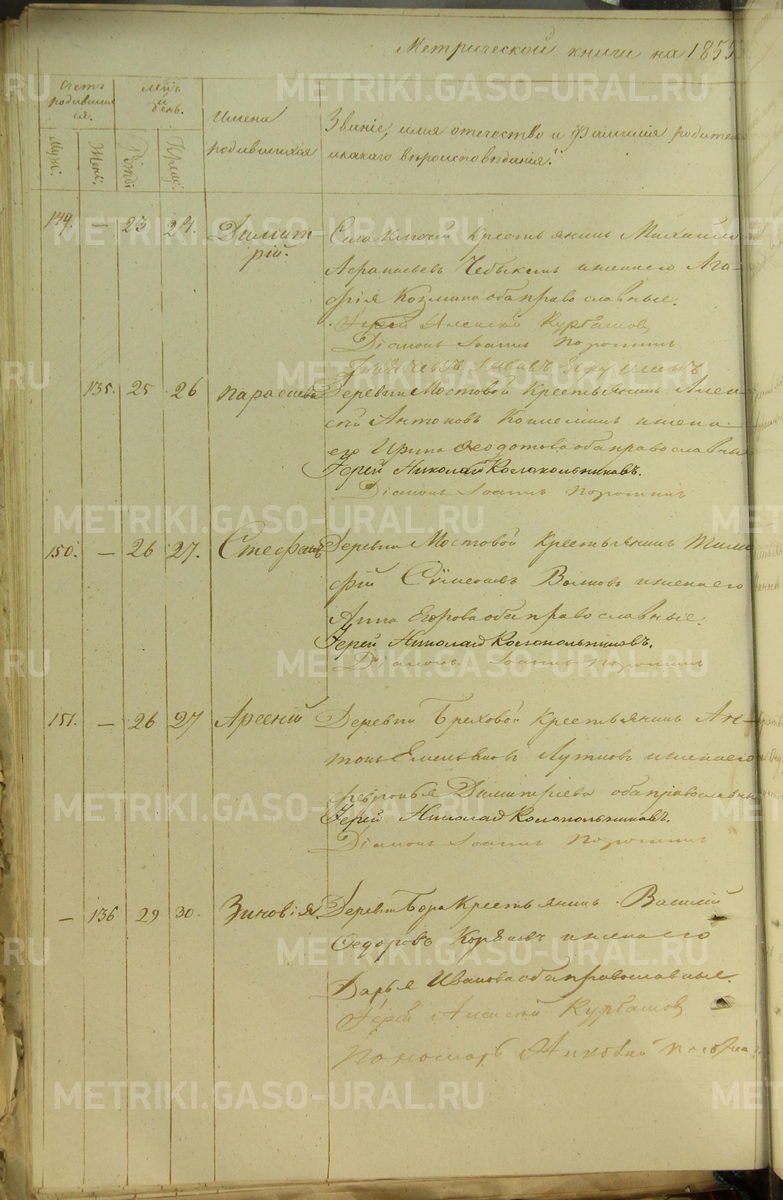 Метрической книги на 1855
Счетъ родившихся.
Муж:
Жен:
мцъ и день.
Рожд:
Крещ:
Имена родившихся
Званіе, имя отечество и фамилія родите
и какаго вѣроисповѣданія.
149. — 23 24. Димит-
рій.
Села Ключей Крестьянинъ Михайло
Афанасьевъ Чебыкинъ и жена его Ага-
фія Козмина оба православные.
Іерей Алексѣй Курбатовъ
Діаконъ Іоаннъ Порошинъ
135. 25 26 Параскева
Деревни Мостовой Крестьянинъ Алек-
сѣй Антоновъ и жена
его Ирина Ѳеодотова оба православные
Іерей Николай Колокольниковъ.
Діаконъ Іоаннъ Порошинъ
150. — 26 27. Стефанъ
Деревни Мостовой Крестьянинъ Тимо
фій Сѷмеоновъ Волковъ и жена его
Анна Егорова оба православные.
Іерей Николай Колокольниковъ.
Діаконъ Іоаннъ Порошинъ
151. — 26 27 Арсеній
Деревни Бреховой Крестьянинъ Ан-
тонъ Емельяновъ и жена его
Ѳевронья Димитріева оба православные
Іерей Николай Колокольниковъ.
Діаконъ Іоаннъ Порошинъ
— 136 29 30. Зиновія
Деревни Бора Крестьянинъ Василій
Ѳедоровъ и жена его
Дарья Иванова оба православные.
Іерей Алексѣй Курбатовъ
Пономарь
METRIKI.GASO-URAL.RU